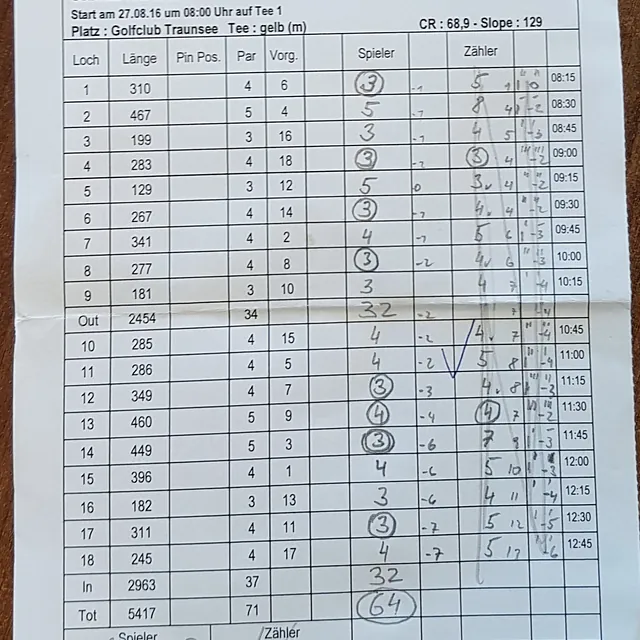 Start am 27.08.16 um 08:00 Uhr auf Tee 1
Platz : Golfclub Traunsee Tee : gelb (m) CR : 68,9 - Slope : 129
Loch Länge Pin Pos. Par Vorg. Spieler Zähler
1 310 4 6 3 -1 5 1 0 08:15
2 467 5 4 5 -1 8 4 -2 08:30
3 199 3 16 3 -1 4 5 -3 08:45
4 283 4 18 3 -2 3 4 -2 09:00
5 129 3 12 5 0 3 4 -2 09:15
6 267 4 14 3 -1 4 4 -2 09:30
7 341 4 2 4 -1 5 09:45
8 277 4 8 3 -2 4 6 -3 10:00
9 181 3 10 3 4 7 -4 10:15
Out 2454 34 32 -2 7 -4
10 285 4 15 4 -2 4 7 -4 10:45
11 286 4 5 4 -2 5 8 -4 11:00
12 349 4 7 3 -3 4 8 11:15
13 460 5 9 4 -4 4 7 -2 11:30
14 449 5 3 3 -6 7 -3 11:45
15 396 4 1 4 -6 5 10 -3 12:00
16 182 3 13 3 -6 4 11 -4 12:15
17 311 4 11 3 -7 5 12 -5 12:30
18 245 4 17 4 -7 5 12:45
In 2963 37 32
Tot 5417 71 64
Spieler /Zähler